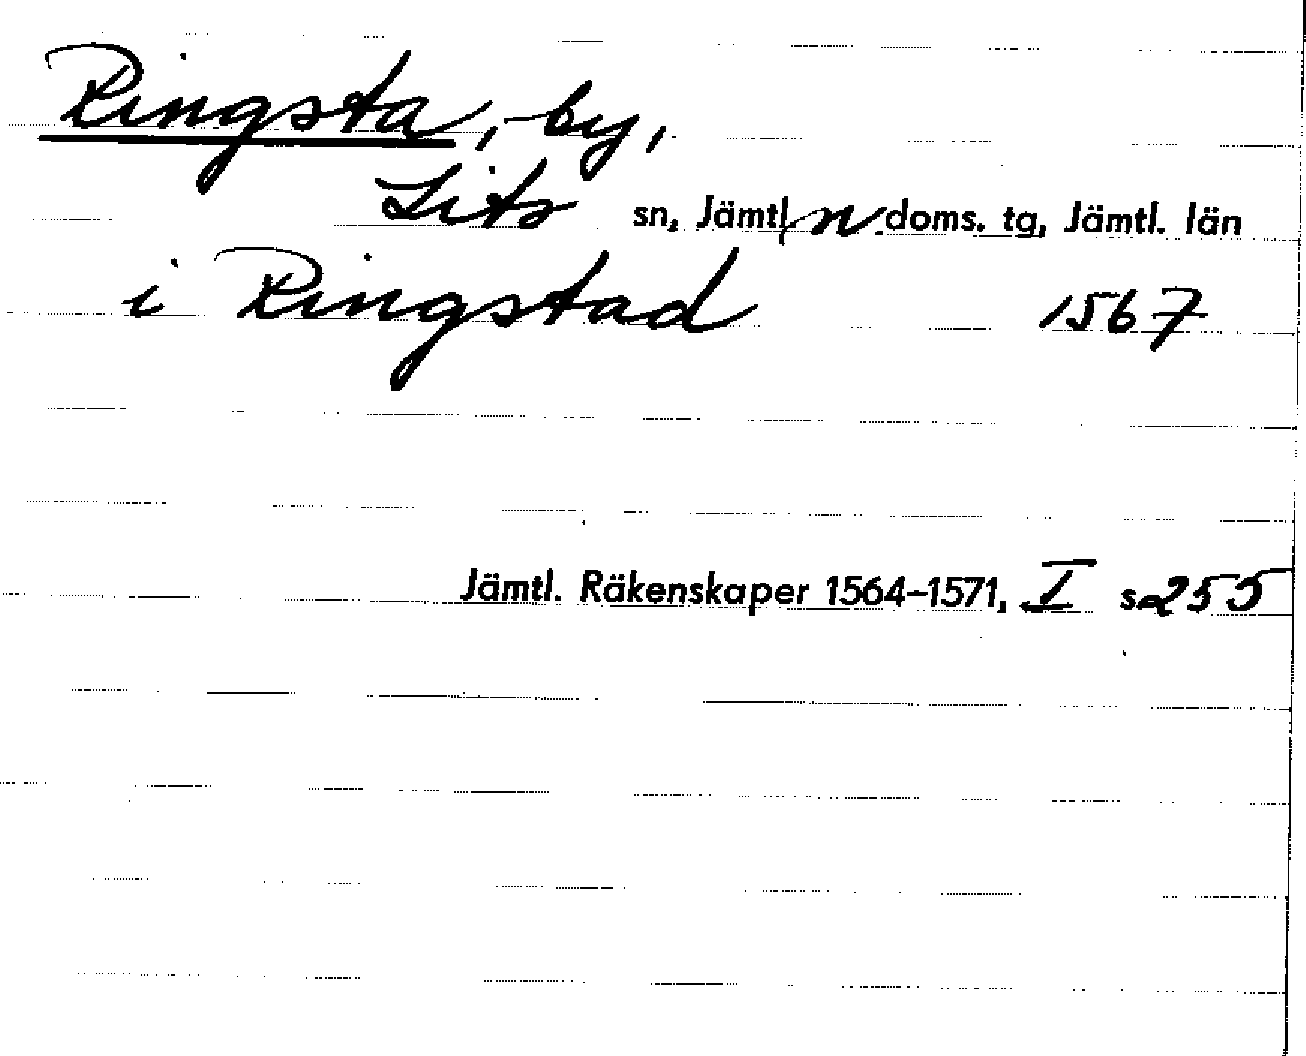 Ringsta, by,
Lits sn, Jämtl. n. doms. tg, Jämtl. län
i Ringstad 1567
Jämtl. Räkenskaper 1564–1571, I s. 255